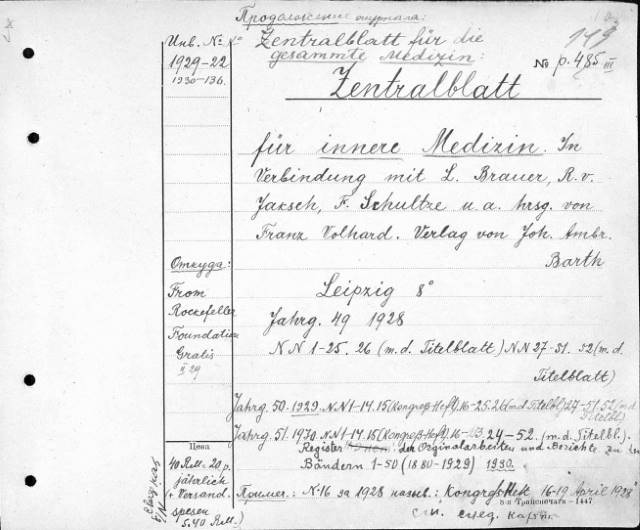 Продолжение журнала:
Инв. № Zentralblatt für die
gesammte Medizin:
119
1929-22
1930-136.
№ p. 485 III
Zentralblatt
für innere Medizin. In
Verbindung mit L. Brauer, R. v.
Jaksch, F. Schultze u. a. hrsg. von
Franz Volhard. Verlag von Joh. Ambr.
Barth
Откуда:
From
Rockefeller
Foundation
Gratis
II 29
Leipzig 8°
Jahrg. 49 1928
NN 1-25. 26 (m. d. Titelblatt) NN 27-51. 52 (m. d.
Titelblatt)
Jahrg. 50. 1929. NN 1-14. 15 (Kongreß Heft). 16-25. 26 (m. d. Titelbl.) 27-51. 52 (m. d.
Titelbl.)
Jahrg. 51. 1930. NN 1-14. 15 (Kongreß-Heft). 16-23. 24-52. (m. d. Titelbl.).
Register der Originalarbeiten und Berichte zu den
Bändern 1-50 (1880-1929) 1930.
Цена
40 R.M. 20 p.
jährlich
+ Versand-
spesen
5.40 R.M.)
Примеч.: N 16 за 1928 назыв.: Kongreßheft 16-19 April 1928
8-я Транспечать-1447
см. след. карт.